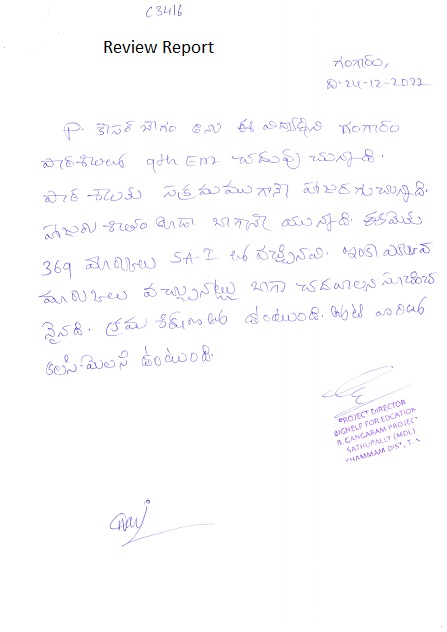 C3416
Review Report
గంగారం,
ది: 24-12-2022
P. కౌసర్ బేగం అను ఈ విద్యార్థిని గంగారం
పాఠశాలలో 9th EM చదువు చున్నది.
పాఠశాలకు సక్రమముగానే హాజరగుచున్నది.
హాజరు శాతం కూడా బాగానే యున్నది. ఈమెకు
369 మార్కులు SA-I లో వచ్చినవి. ఇంకా ఎక్కువ
మార్కులు వచ్చునట్లు బాగా చదవాలని సూచించ
నైనది. క్రమ శిక్షణతో ఉంటుంది. తోటి వారితో
కలసి-మెలసి ఉంటుంది.
PROJECT DIRECTOR
BIGHELP FOR EDCATION
B. GANGARAM PROJECT
SATHUPALLY (MDL)
KHAMMAM DIST, T.S.